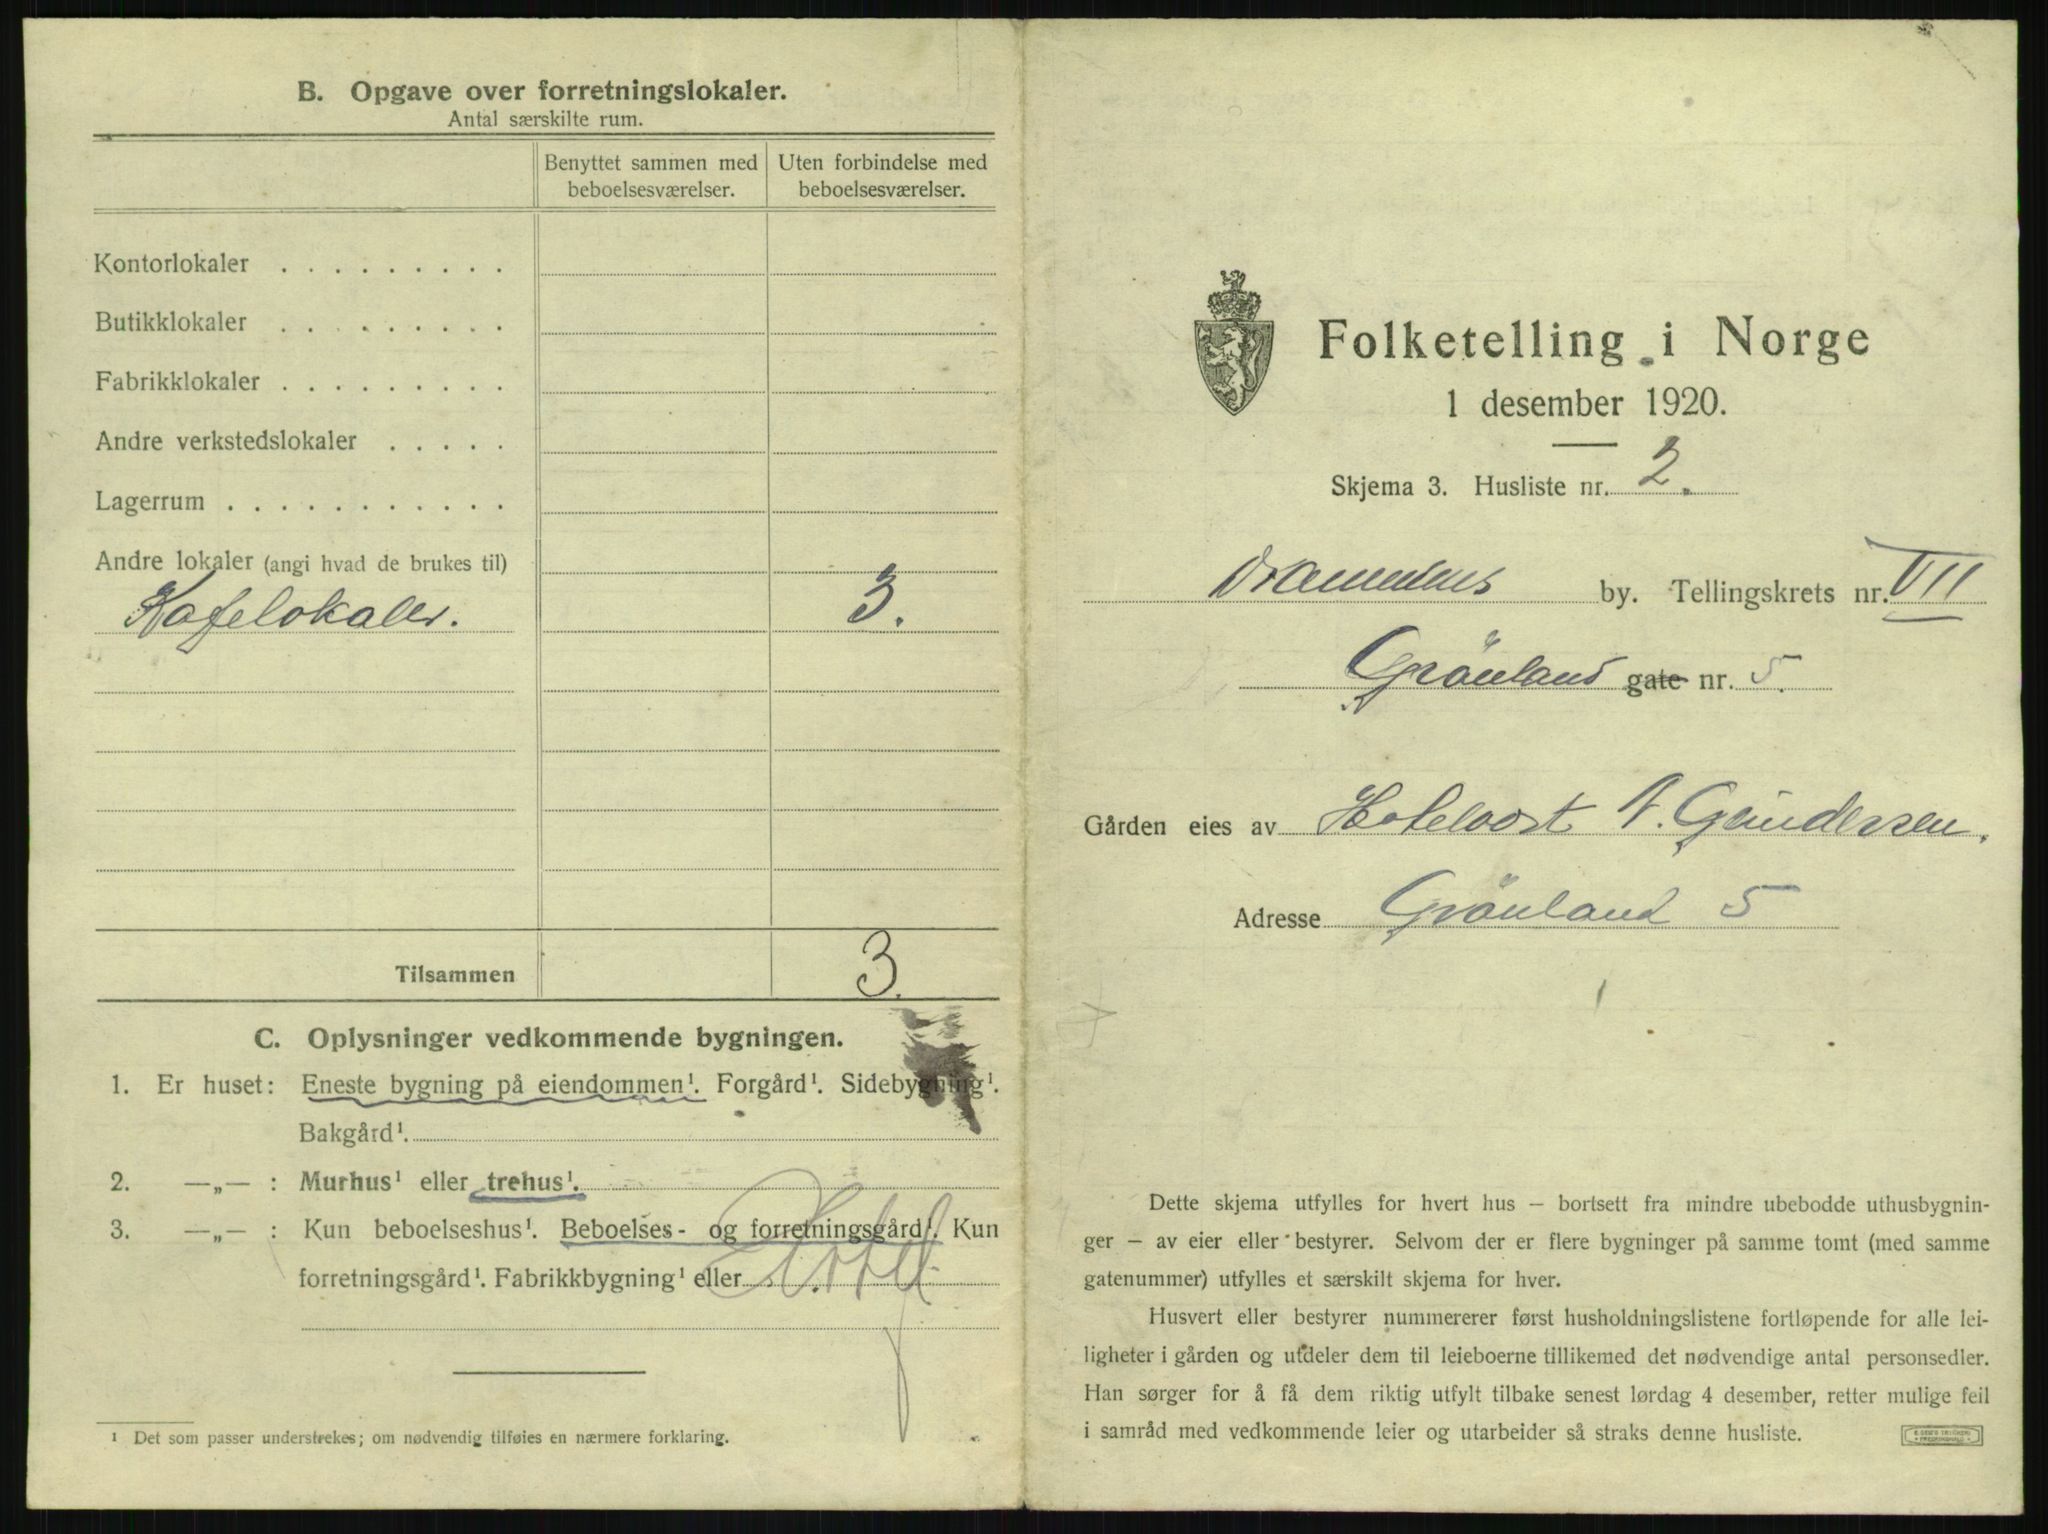 B. Opgave over forretningslokaler.
Antal særskilte rum.
Benyttet sammen med beboelsesværelser.
Uten forbindelse med beboelsesværelser.
Kontorlokaler . . . . . . . . .
Butikklokaler . . . . . . . . .
Fabrikklokaler . . . . . . . . .
Andre verkstedslokaler . . . . .
Lagerrum . . . . . . . . . . .
Andre lokaler (angi hvad de brukes til)
Kafelokaler. 3.
Tilsammen 3.
C. Oplysninger vedkommende bygningen.
1. Er huset: Eneste bygning på eiendommen¹. Forgård¹. Sidebygning¹.
Bakgård¹.
2. —„— : Murhus¹ eller trehus¹.
3. —„— : Kun beboelseshus¹. Beboelses- og forretningsgård¹. Kun
forretningsgård¹. Fabrikkbygning¹ eller Hotel.
¹ Det som passer understrekes; om nødvendig tilføies en nærmere forklaring.
Folketelling i Norge
1 desember 1920.
Skjema 3. Husliste nr. 2.
Drammens by. Tellingskrets nr. VII
Grönland gate nr. 5.
Gården eies av Hotelvært A. Gundersen.
Adresse Grönland 5
Dette skjema utfylles for hvert hus — bortsett fra mindre ubebodde uthusbygnin-
ger — av eier eller bestyrer. Selvom der er flere bygninger på samme tomt (med samme
gatenummer) utfylles et særskilt skjema for hver.
Husvert eller bestyrer nummererer først husholdningslistene fortløpende for alle lei-
ligheter i gården og utdeler dem til leieboerne tillikemed det nødvendige antal personsedler.
Han sørger for å få dem riktig utfylt tilbake senest lørdag 4 desember, retter mulige feil
i samråd med vedkommende leier og utarbeider så straks denne husliste.